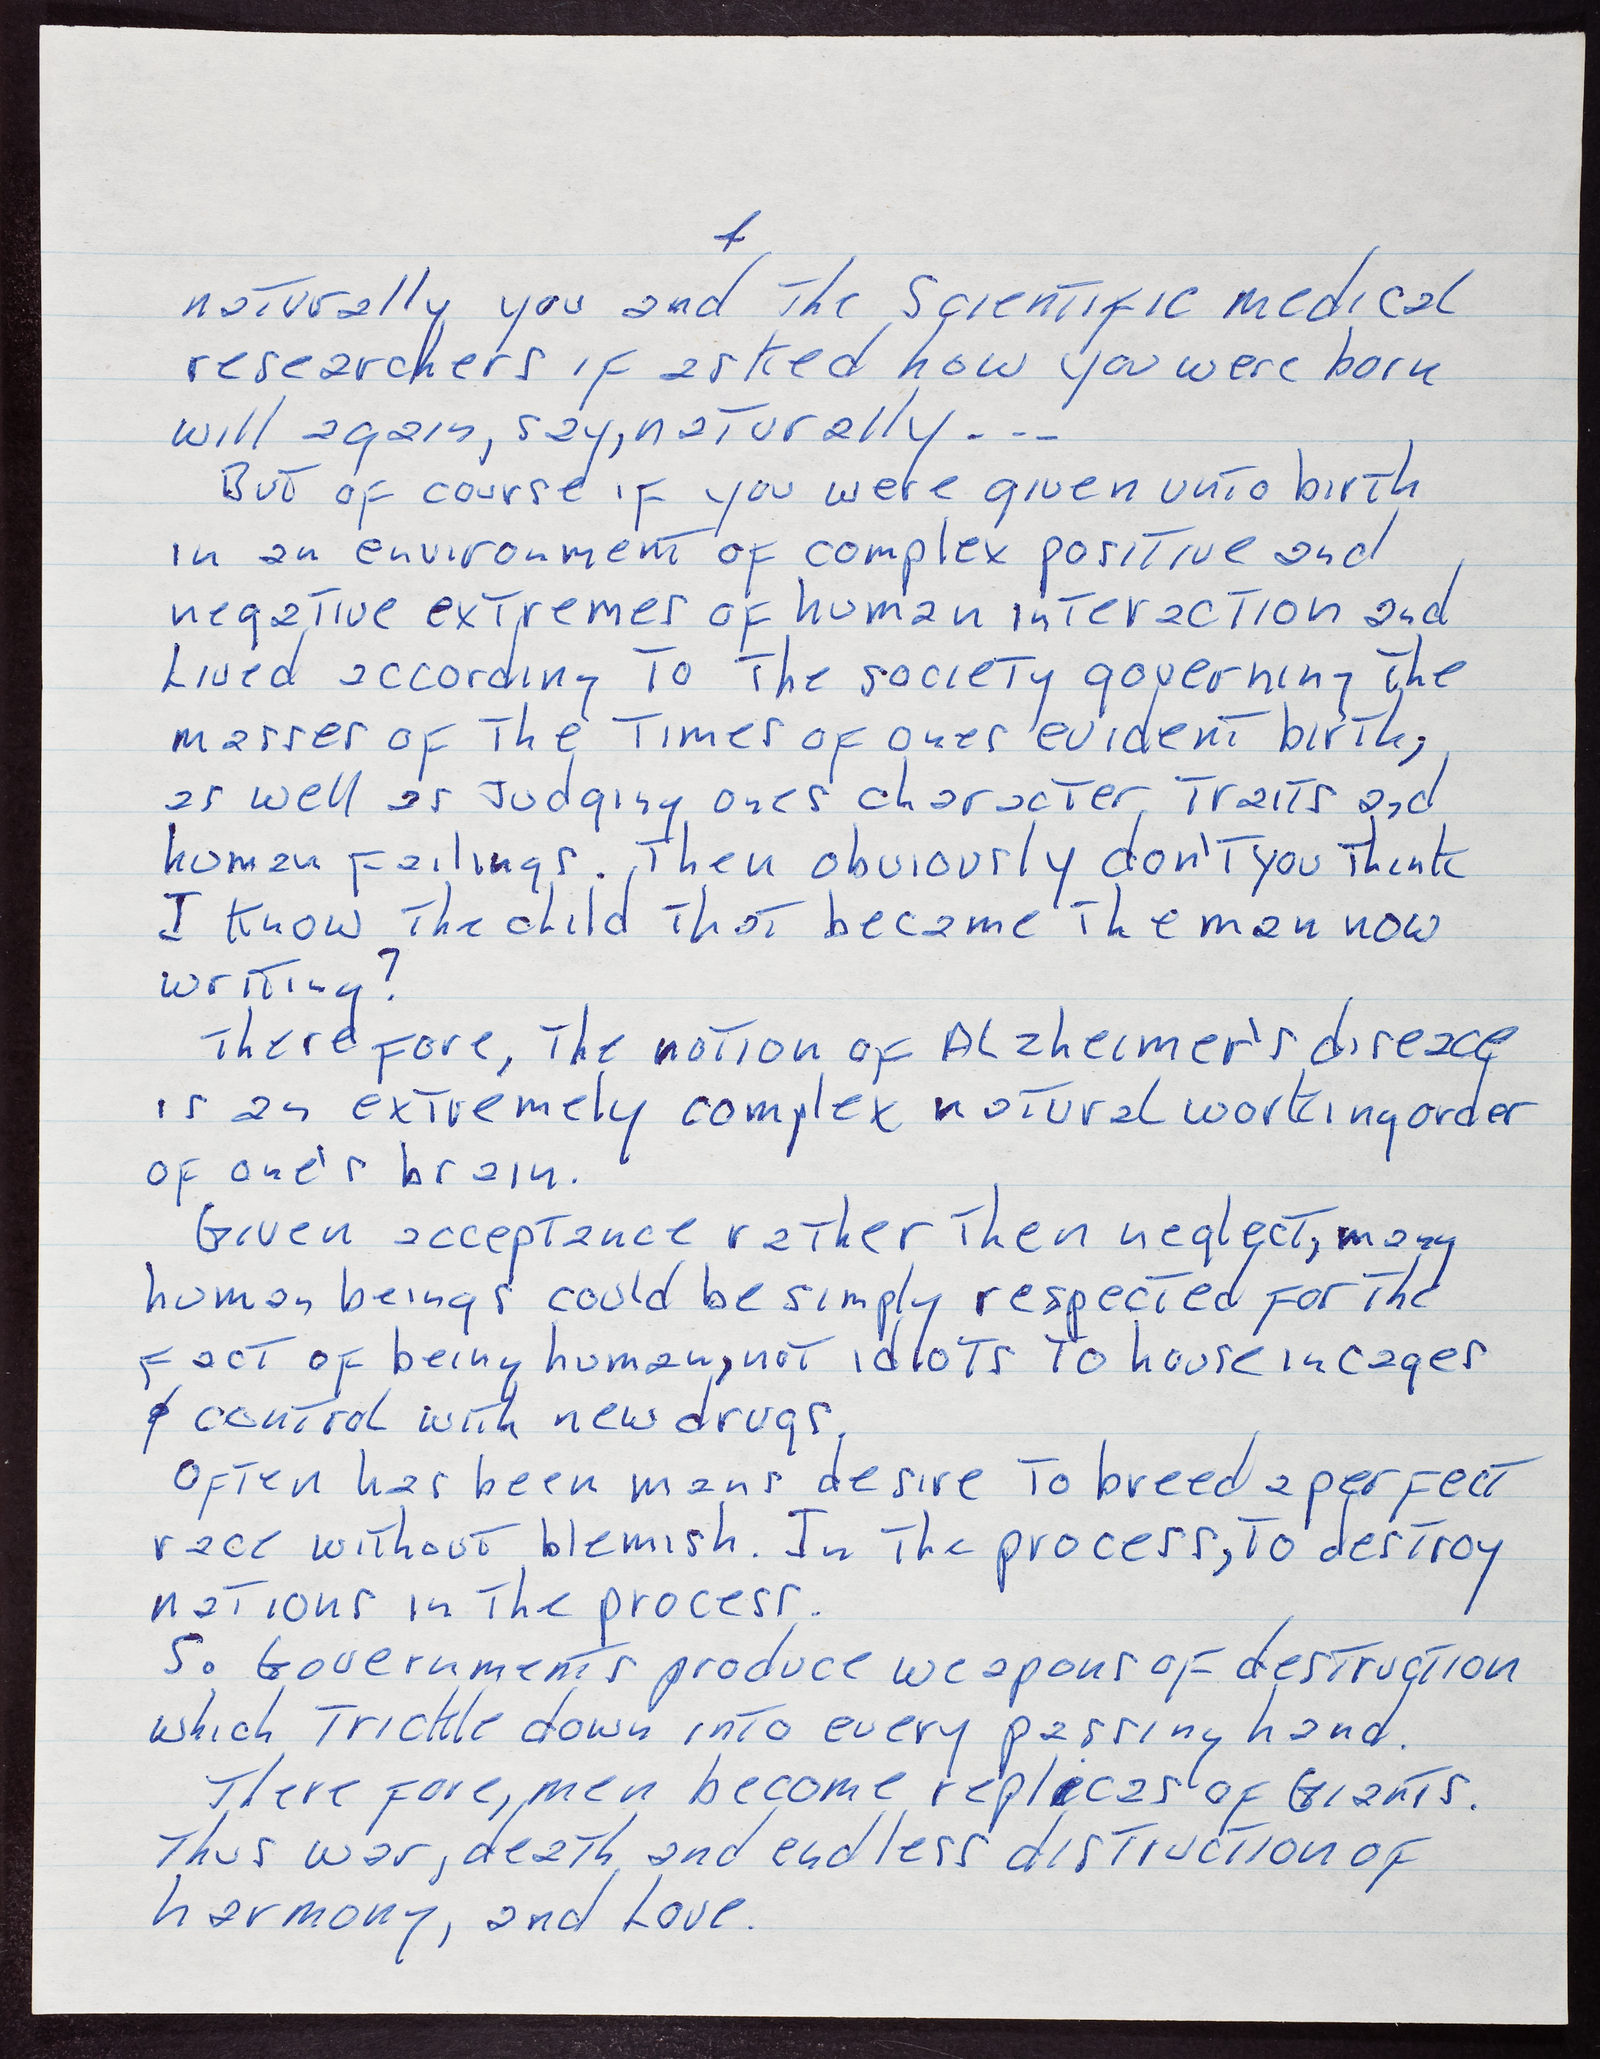 naturally you and the Scientific medical
researchers if asked how you were born
will again, say, naturally - - -
But of course if you were given unto birth
in an environment of complex positive and
negative extremes of human interaction and
Lived according to the society governing the
masses of the times of ones evident birth,
as well as Judging ones character traits and
human failings. Then obviously don't you think
I know the child that became the man now
writing?
Therefore, the notion of ALzheimer's diseace
is an extremely complex natural working order
of one's brain.
Given acceptance rather then neglect, many
human beings could be simply respected for the
fact of being human, not idiots to house in cages
& control with new drugs.
Often has been mans desire to breed a perfect
race without blemish. In the process, to destroy
nations in the process.
So Governments produce weapons of destruction
which trickle down into every passing hand.
Therefore, men become replicas of Giants.
Thus war, death and endless distruction of
harmony, and Love.